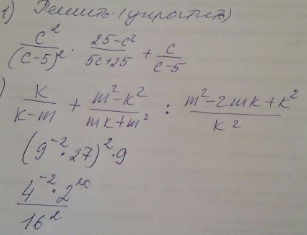 1) Решить: (упростить)
c²/(c-5)² · 25-c²/5c+25 + c/c-5
) k/k-m + m²-k²/mk+m² : m²-2mk+k²/k²
(9⁻² · 27)² · 9
4⁻² · 2²⁰/16²